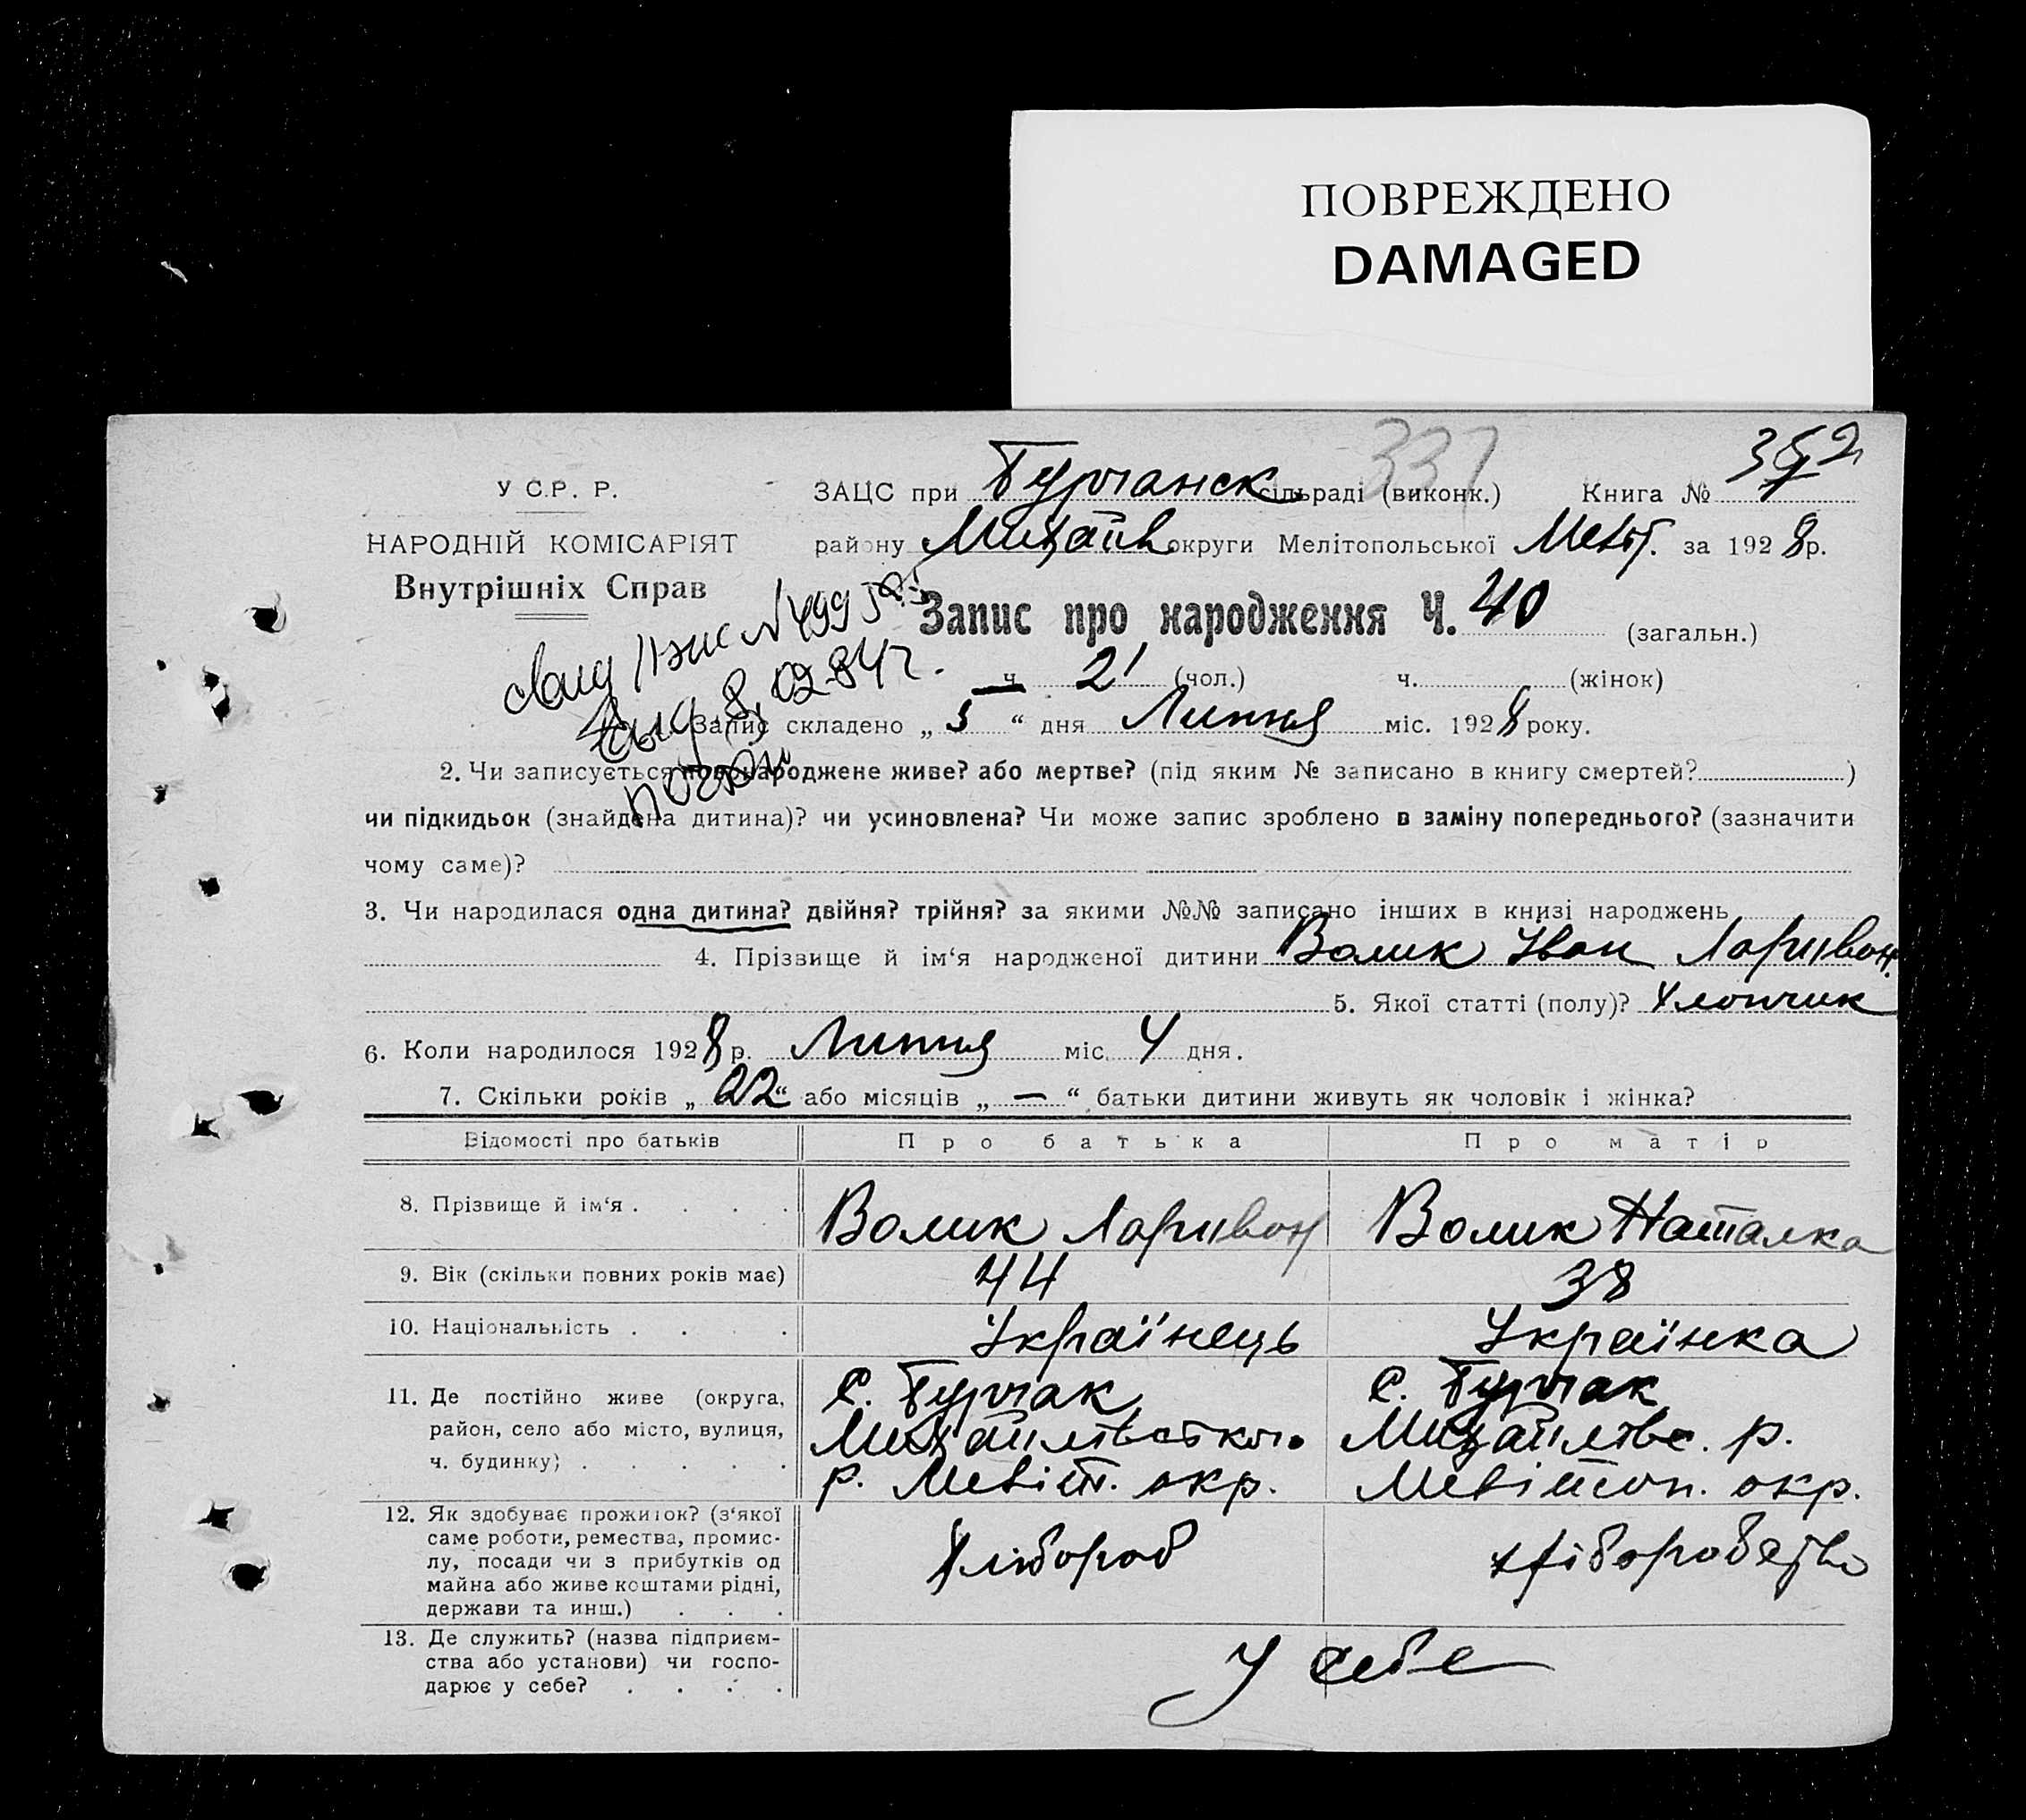 ПОВРЕЖДЕНО
DAMAGED
337
У С.Р. Р.
ЗАЦС при Бурчанск сільраді (виконк.) Книга № 352
НАРОДНІЙ КОМІСАРІЯТ
Внутрішніх Справ
району Михайлів округи Мелітопольської Меліт. за 1928 р.
Запис про народження Ч. 40 (загальн.)
ч. 21 (чол.) ч. (жінок)
8, 02-84 г.
Запис складено „ 5 “ дня Липня міс. 1928 року.
2. Чи записується новонароджене живе? або мертве? (під яким № записано в книгу смертей? )
чи підкидьок (знайдена дитина)? чи усиновлена? Чи може запис зроблено в заміну попереднього? (зазначити
чому саме)?
3. Чи народилася одна дитина? двійня? трійня? за якими №№ записано інших в книзі народжень
4. Прізвище й ім‘я народженої дитини Волик Іван Ларивон.
5. Якої статті (полу)? Хлопчик
6. Коли народилося 1928 р. Липня міс. 4 дня.
7. Скільки років „ 22 “ або місяців „ — “ батьки дитини живуть як чоловік і жінка?
Відомості про батьків Про батька Про матір
8. Прізвище й ім‘я . . . . Волик Ларивон Волик Наталка
9. Вік (скільки повних років має) 44 38
10. Національність . . . . Українець Українка
11. Де постійно живе (округа, район, село або місто, вулиця, ч. будинку) . . . . .
с. Бурчак Михайлівського р. Меліт. окр.
с. Бурчак Михайлівс. р. Мелітоп. окр.
12. Як здобуває прожиток? (з‘якої саме роботи, ремества, промислу, посади чи з прибутків од майна або живе коштами рідні, держави та инш.) . . .
Хлібороб хліборобство
13. Де служить? (назва підприємства або установи) чи господарює у себе? . . . .
У себе